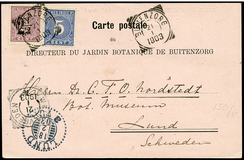 Carte postale
5
BUITENZORG
1903
DU
DIRECTEUR DU JARDIN BOTANIQUE DE BUITENZORG
Herrn Dr C. F. O. Nordstedt
Bot. Museum
Lund
Schweden
LUND